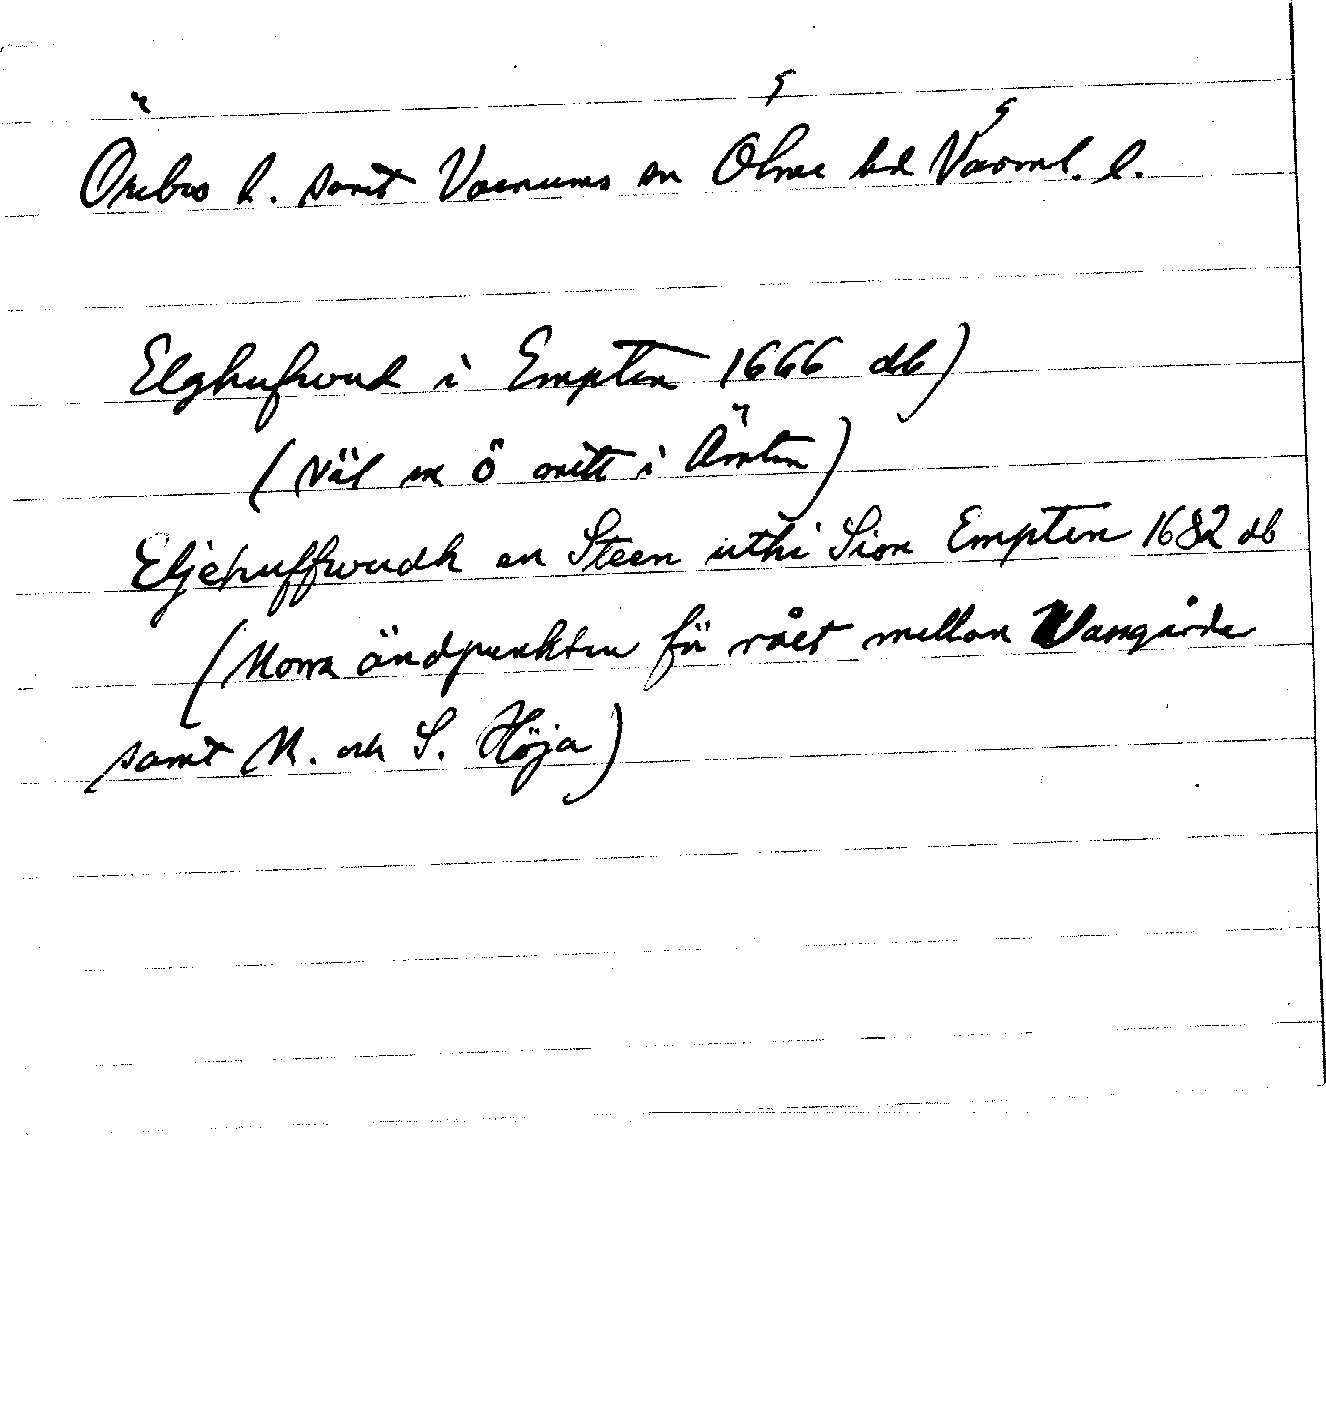 Örebro l. samt Varnums sn Ölme hd Värml. l.
Elghufwud i Empten 1666 db)
(Väl en ö mitt i Ämten)
Eljehuffwudh en Steen uthi Siön Empten 1682 db
(Norra ändpunkten för rået mellan Vassgårda
samt N. och S. Höja)